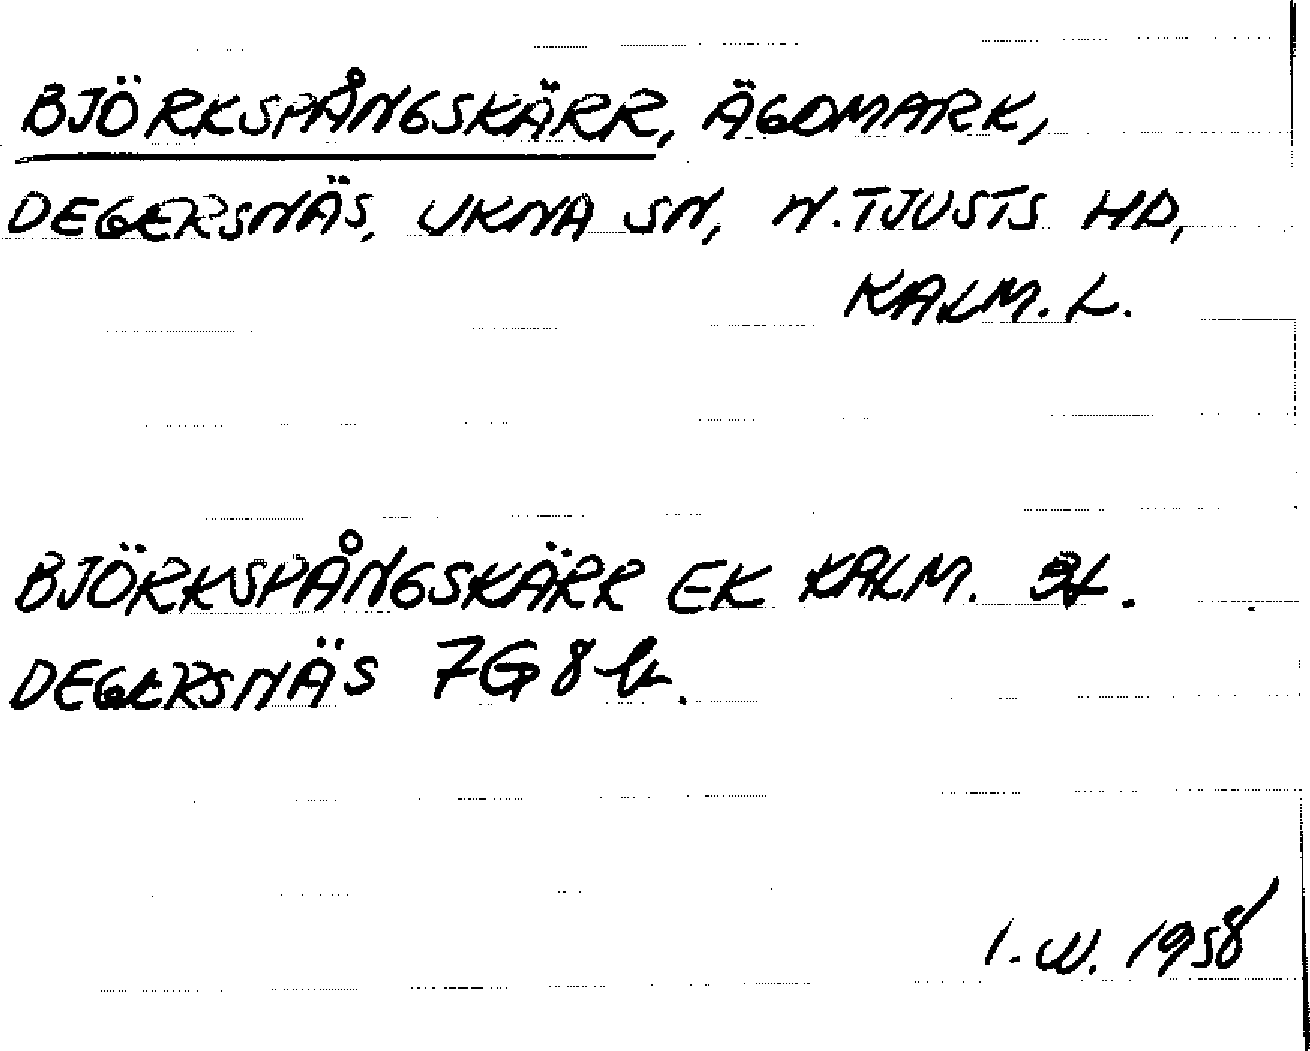 BJÖRKSPÅNGSKÄRR, ÄGOMARK,
DEGERSNÄS, UKNA SN, N. TJUSTS HD,
KALM. L.
BJÖRKSPÅNGSKÄRR EK KALM. L.
DEGERSNÄS 7G 8 b.
I. W. 1958